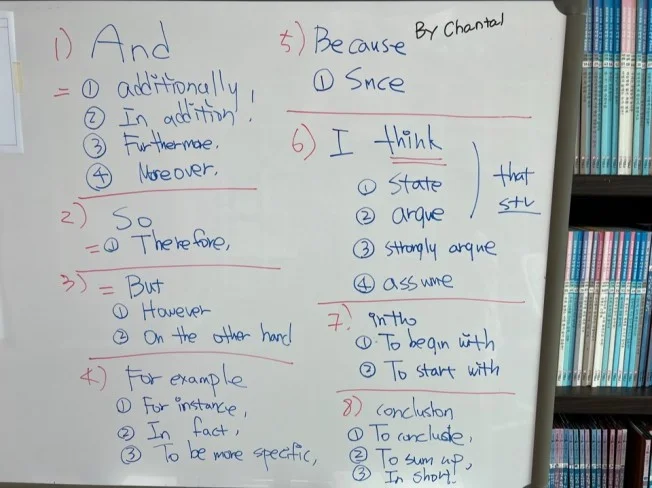 By Chantal
1) And
= ① additionally,
② In addition,
③ Furthermore,
④ Moreover,
2) So
= ① Therefore,
3) = But
① However
② On the other hand
4) For example
① For instance,
② In fact,
③ To be more specific,
5) Because
① Since
6) I think
① state
② argue
③ strongly argue
④ assume
that
s+v
7) intro
① To begin with
② To start with
8) conclusion
① To conclude,
② To sum up,
③ In short,